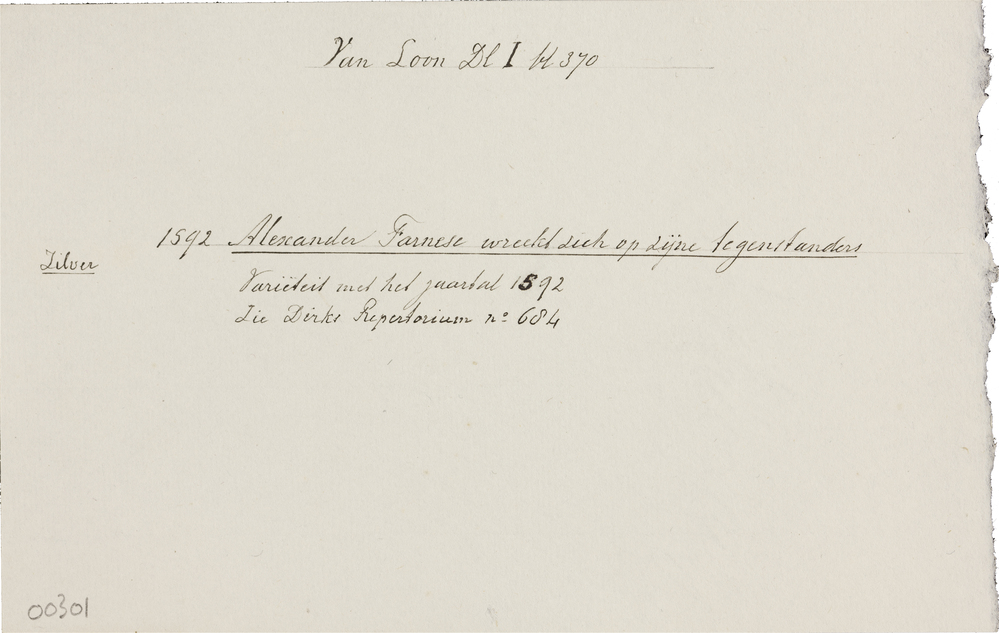 Van Loon Dl I bl 370
1592 Alexander Farnese wreekt zich op zijne tegenstanders
Zilver
Variëteit met het jaartal 1592
Zie Dirks Repertorium no 684
00301